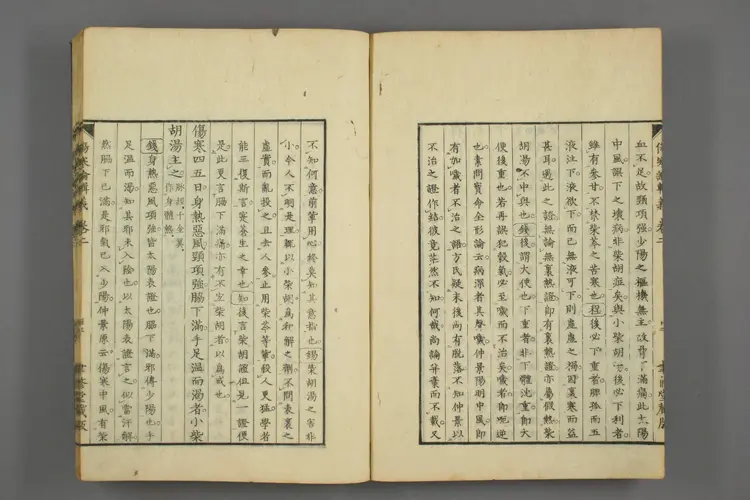 血不足故頸項强少陽之樞機無主故脅下滿痛此太陽
中風誤下之壞病非柴胡症矣與小柴胡湯後必下利者
雖有參甘不禁柴芩之苦寒也程後必下重者脾孤而五
液注下液欲下而已無液可下則虛虛之禍因裏寒而益
甚耳遇此之證無論無裏熱證即有裏熱證亦屬假熱柴
胡湯不中與也錢後謂大便也下重者非下體沈重即大
便後重也若再誤犯穀氣必至噦而不治矣噦者即呃逆
也素問寶命全形論云病深者其聲噦仲景陽明中風即
有加噦者不治之語方氏疑末後尚有脫落不知仲景以
不治之證作結彼竟茫然不知何哉尚論并棄而不載又
不知何意前輩用心終莫知其意指也錫柴胡湯之害非
小今人不明是理輒以小柴胡爲和解之劑不問表裏之
虛實而亂投之且去人參止用柴芩等輩殺人更猛學者
能三復斯言實蒼生之幸也知後言柴胡證但見一證便
是此更言脇下滿痛亦有不宜柴胡者以爲戒也
傷寒四五日身熱惡風頸項强脇下滿手足溫而渴者小柴
胡湯主之
錢身熱惡風項强皆太陽表證也脇下滿邪傳少陽也手
足溫而渴知其邪未入陰也以太陽表證言之似當汗解
然脇下已滿是邪氣已入少陽仲景原云傷寒中風有柴
傷寒論輯義 卷二